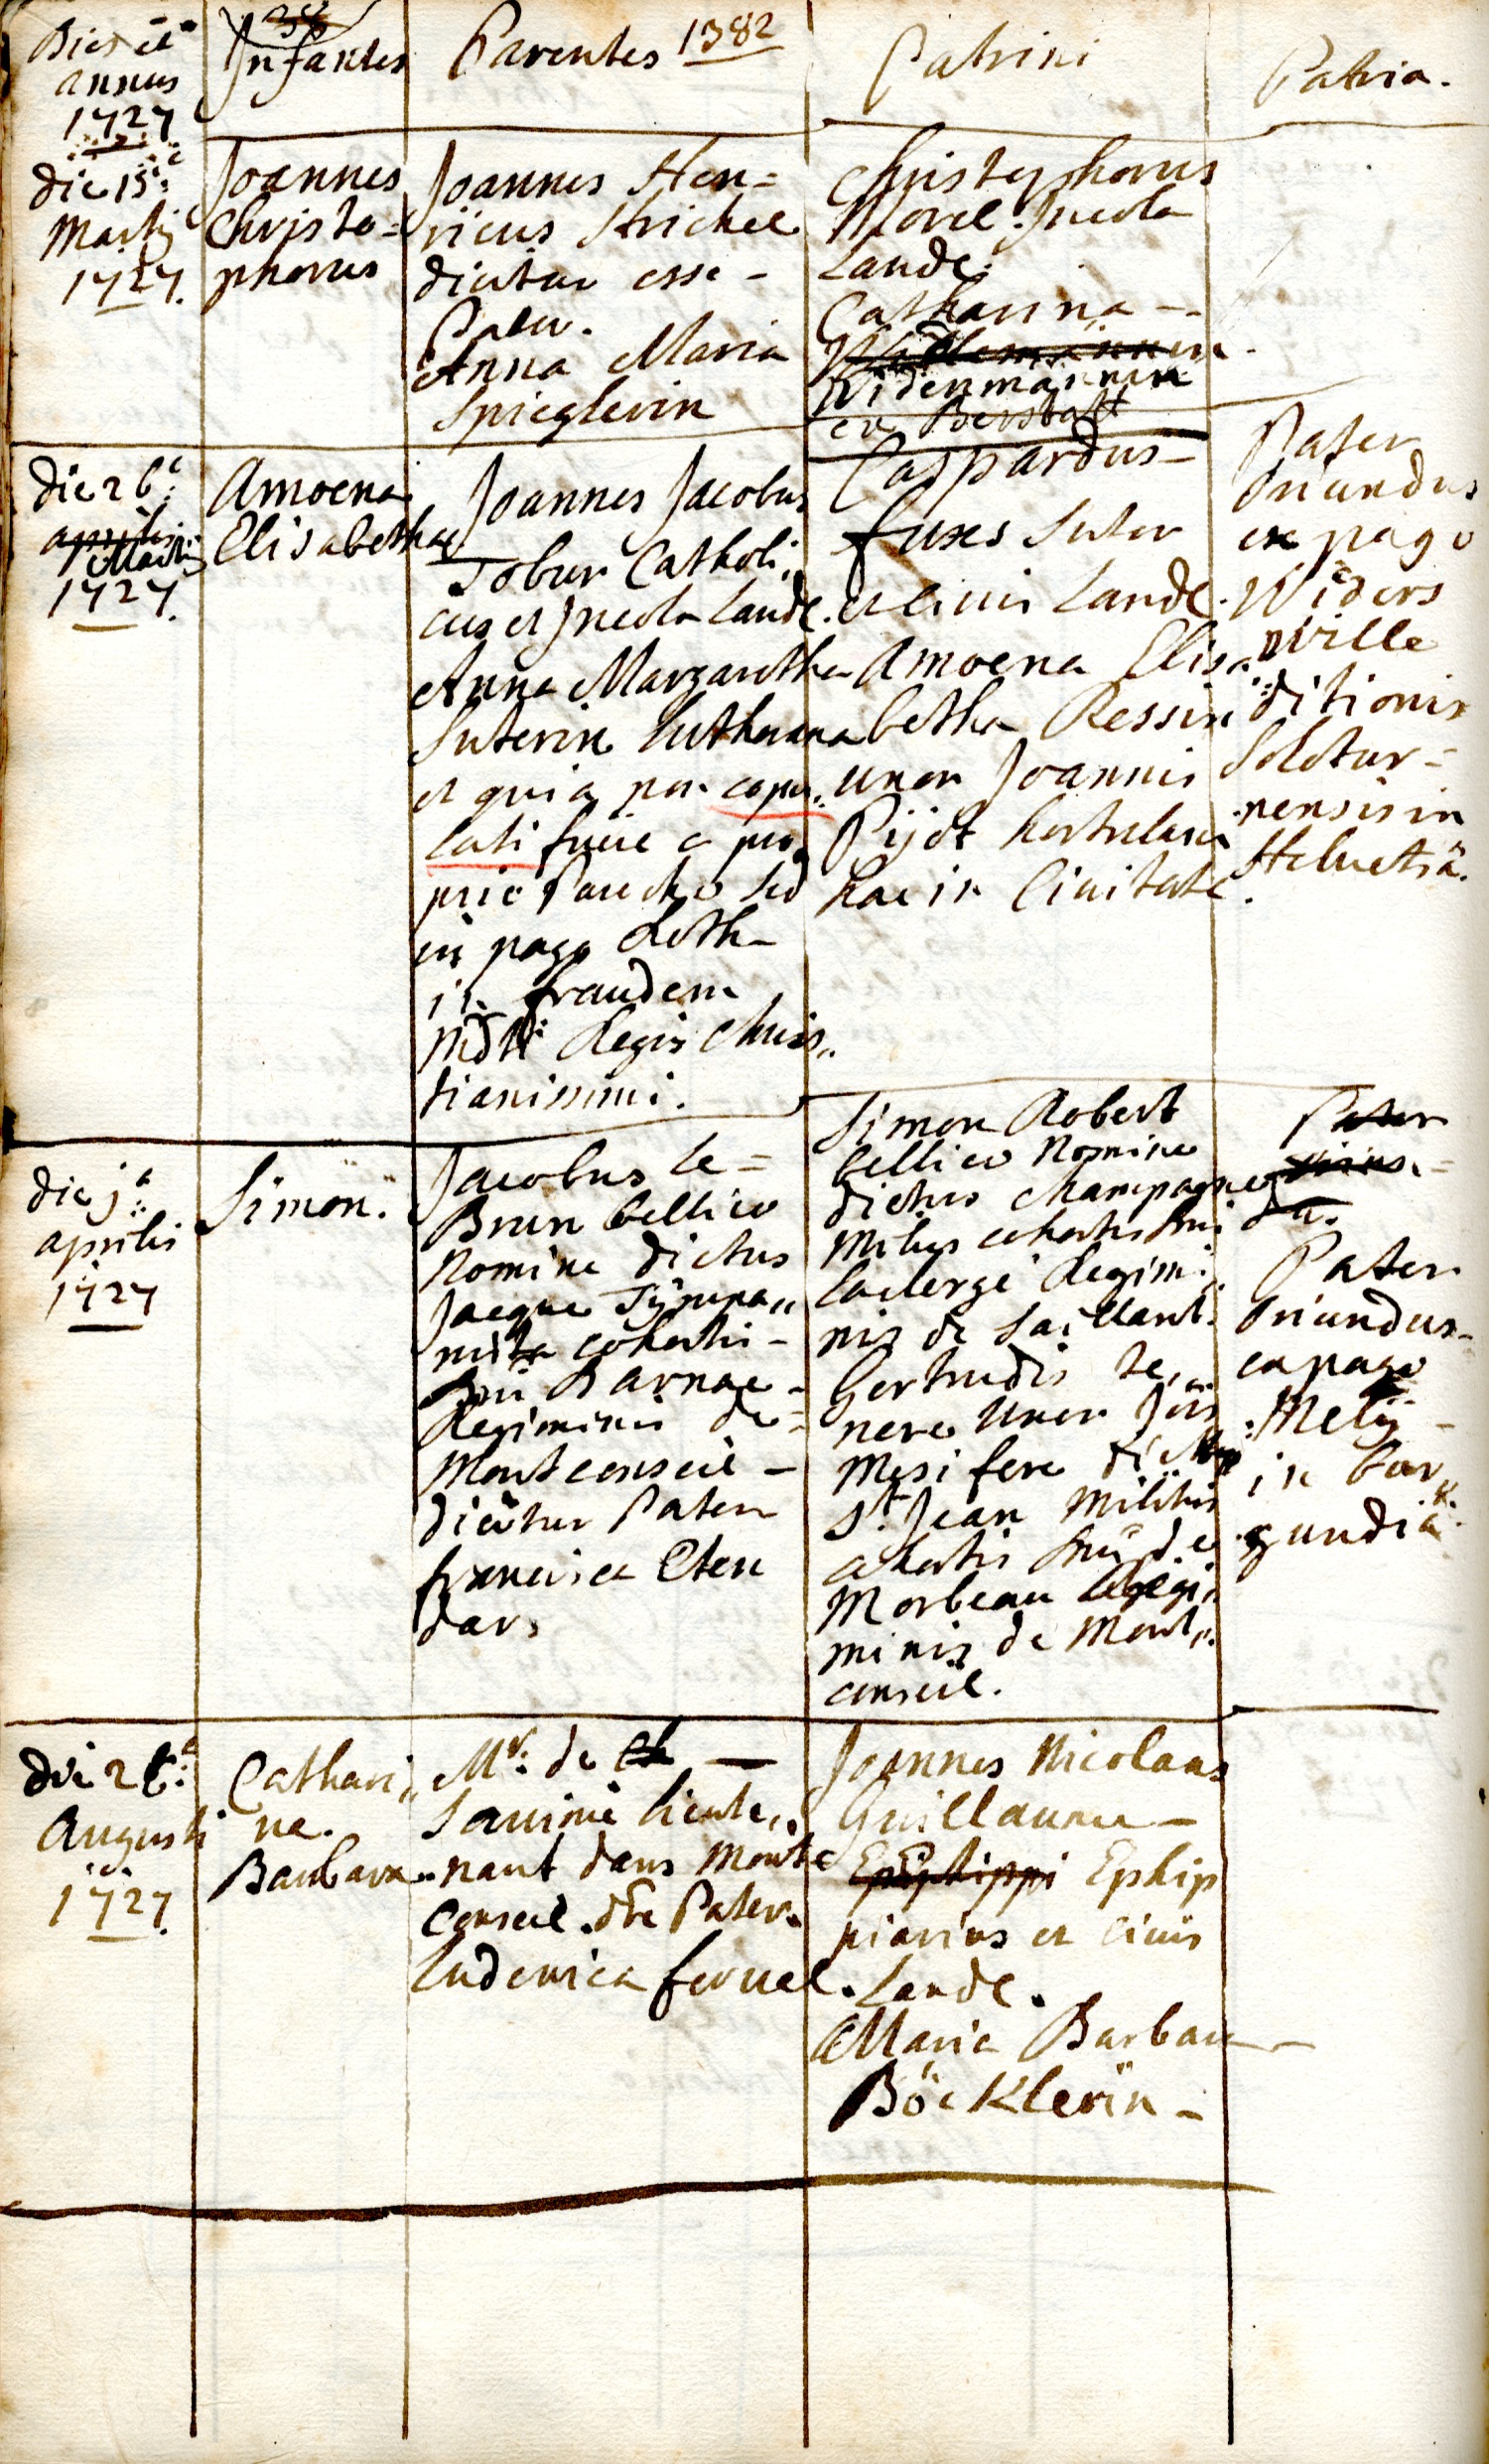 Dies et
annus
1727
Infantes
Parentes 1382
Patrini
Patria.
die 15a
Martij
1727.
Joannes
Christo=
phorus
Joannes Hen=
ricus Strickel
dicitur esse -
Pater.
Anna Maria
Spieglerin
Christophorus
Morel Incola
Landç:
Catharina -
Widenmännin
ex Berstatt
die 26a:
aprilis
Martij
1727.
Amoena
Elisabetha
Joannes Jacobus
Tobur Catholi„
cus et Incola Landç.
Anna Margaretha
Suterin Lutherana
et quia non copu„
lati fuere a pro
prio Parocho sed
in pago Roth
in fraudem
Regis Chris„
tianissimi.
Caspardus
fuxs Sutor
et civis Landç.
Amoena Elisa„
betha Ressin
uxor Joannis
Pijot hortulani
hac in Civitate.
Pater
oriundus
ex pago
Widers
wille
ditionis
Solotur=
nensis in
Helvetiâ.
die ja:
aprilis
1727
Simon.
Jacobus le=
Brun bellico
Nomine dictus
Jacque Tÿmpa„
nista cohortis -
Dni Barnac -
Regiminis de=
Montconseil -
dicitur Pater
francisca Eten
dars
Simon Robert
bellico Nomine
dictus Champagne
Miles cohortis Dni
laclergé Regimi„
nis de Saillant.
Gertrudis te„
nere uxor Jois
Mesifere dicti
St. Jean Militis
cohortis Dni de
Morbeau Regi„
minis de Mont„
conseil.
Pater
oriundus
ex pago
Melij
in bur„
gundiâ
die 26a:
Augusti
1727.
Cathari„
na.
Barbara
Mr: de
Savinie lieute„
nant dans Mont
Conseil. dr Pater.
Ludovica fernel.
Joannes Nicolaus
Guillaume -
Ephippi Ephip
piarius et civis
Landç.
Maria Barbara
Böcklerin -